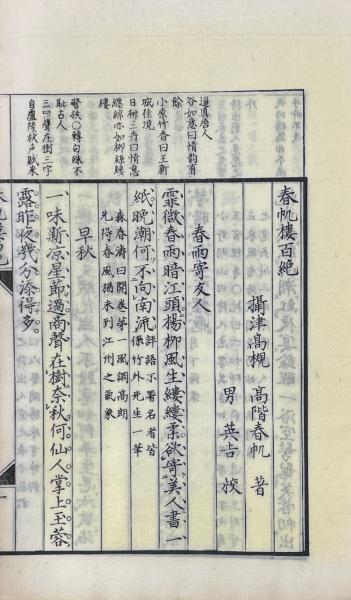 春帆樓百絶
攝津高槻　高階春帆　著
男　英吉　校
春雨寄友人
霏微春雨暗江頭楊柳風生縷縷柔欲寄美人書一
紙晩潮何不向南流
評語不署名者皆
係竹外先生一筆
森春濤曰開卷第一風調高朗
先得春風猶未到江州之氣象
早秋
一味新凉星節過商聲在樹奈秋何仙人掌上玉蓉
露昨夜幾分添得多
逼真唐人
谷如意曰情韵有
餘
小原竹香曰王新
城佳境
日柳三舟曰情意
纏綿亦如柳線縷
縷
警拔〇轉句殊不
恥古人
三曰聲在樹三字
自廬陵秋声賦来